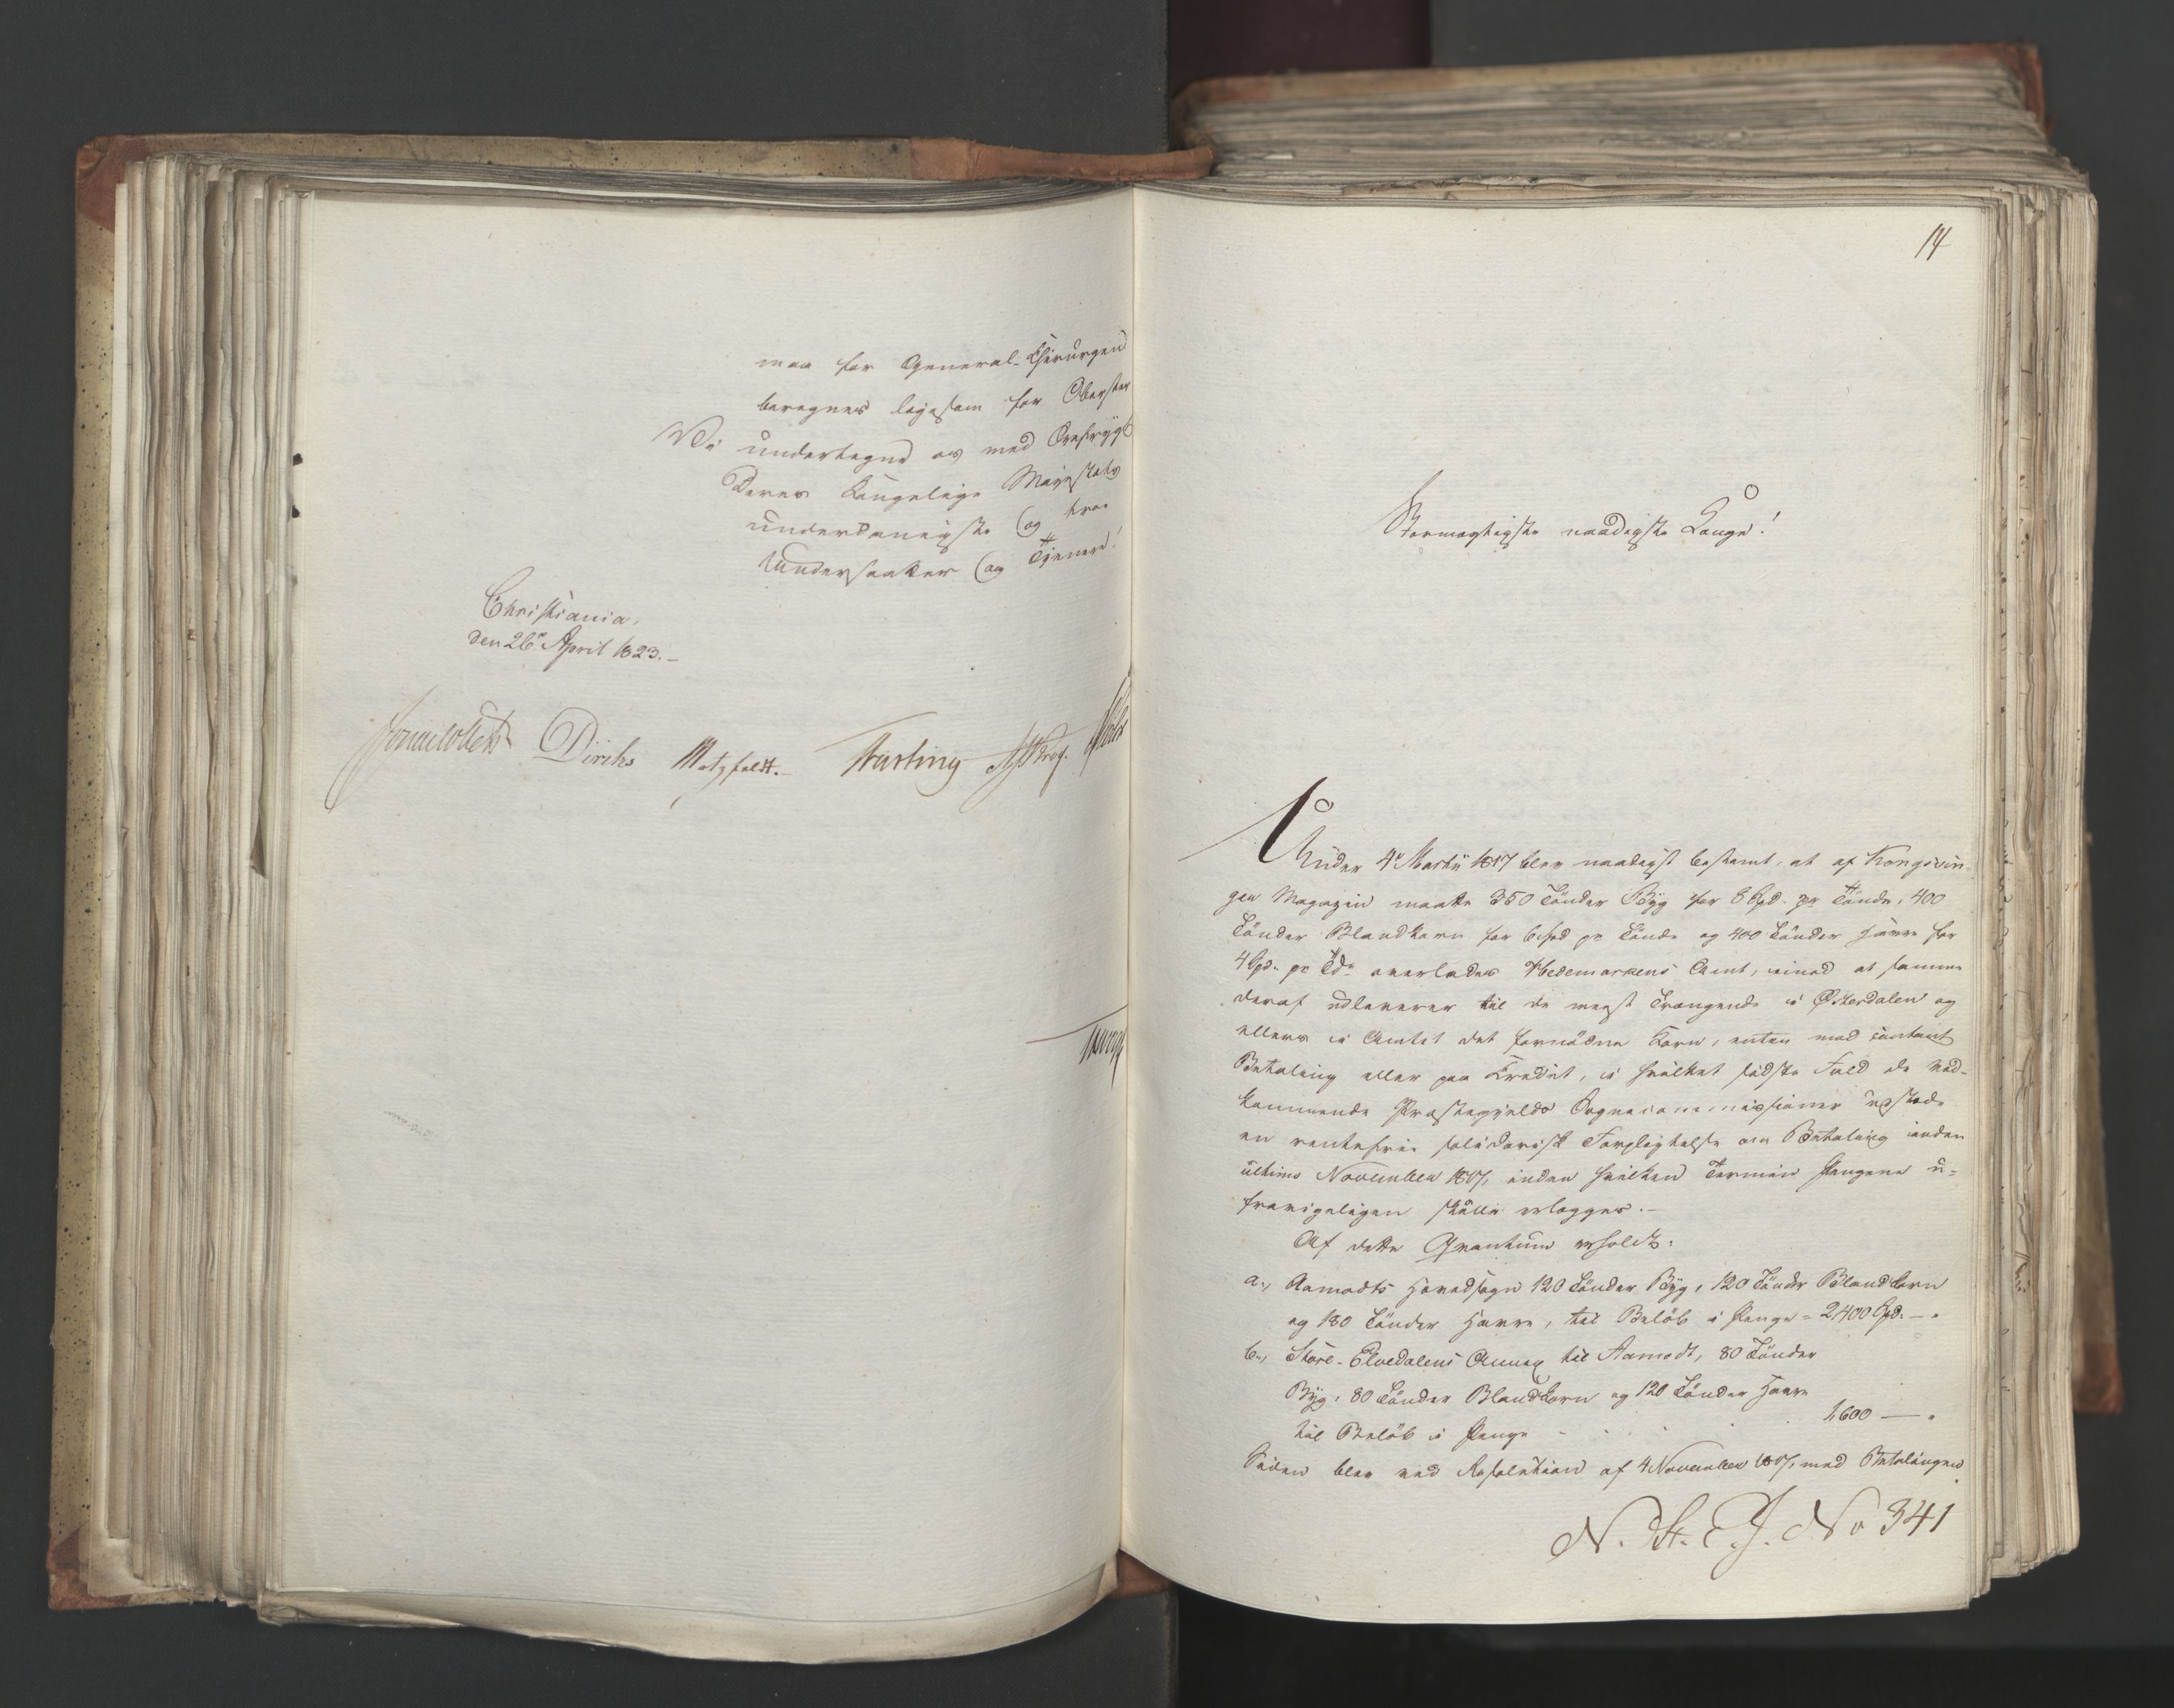 maa for General-Chirurgen
beregnes ligesom for Oberster
Vi undertegne os med Ærefrygt
Deres Kongelige Majestæts
underdanigste og troe
Undersaatter og Tjenere!
Christiania,
den 26de April 1823.–
Sommerhielm Diriks Motzfeldt.– Harting Krog.
14
Stormægtigste naadigste Konge!
Under 4de Martii 1817 blev naadigst bestemt, at af Kongsvin-
gen Magazin maatte 350 Tønder Byg for 8 Spd. pr Tønde, 400
Tønder Blandkorn for 6 Spd pr Tønde og 400 Tønder Havre for
4 Spd. pr Tde overlades Hedemarkens Amt, imod at samme
deraf udleverer til de meest Trængende i Østerdalen og
ellers i Amtet det fornødne Korn, enten mod contant
Betaling eller paa Credit, i hvilket sidste Fald de Ved-
kommende Præstegjelds Sognecommissioner udstæde
en rentefrie solidarisk Forpligtelse om Betaling inden
ultimo November 1817, inden hvilken Termin Pengene u-
fravigeligen skulle erlægges.–
Af dette Qvantum erholdt:
a., Aamodts Hovedsogn 120 Tønder Byg, 120 Tønder Blandkorn
og 180 Tønder Havre, til Beløb i Penge = 2400 Spd. – "
b., Store-Elvedalens Annex til Aamodt, 80 Tønder
Byg, 80 Tønder Blandkorn og 120 Tønder Havre
til Beløb i Penge - - - 1,600 — "
Siden blev ved Resolution af 4 November 1817, med Betalingen
N. St. C. J. No 341